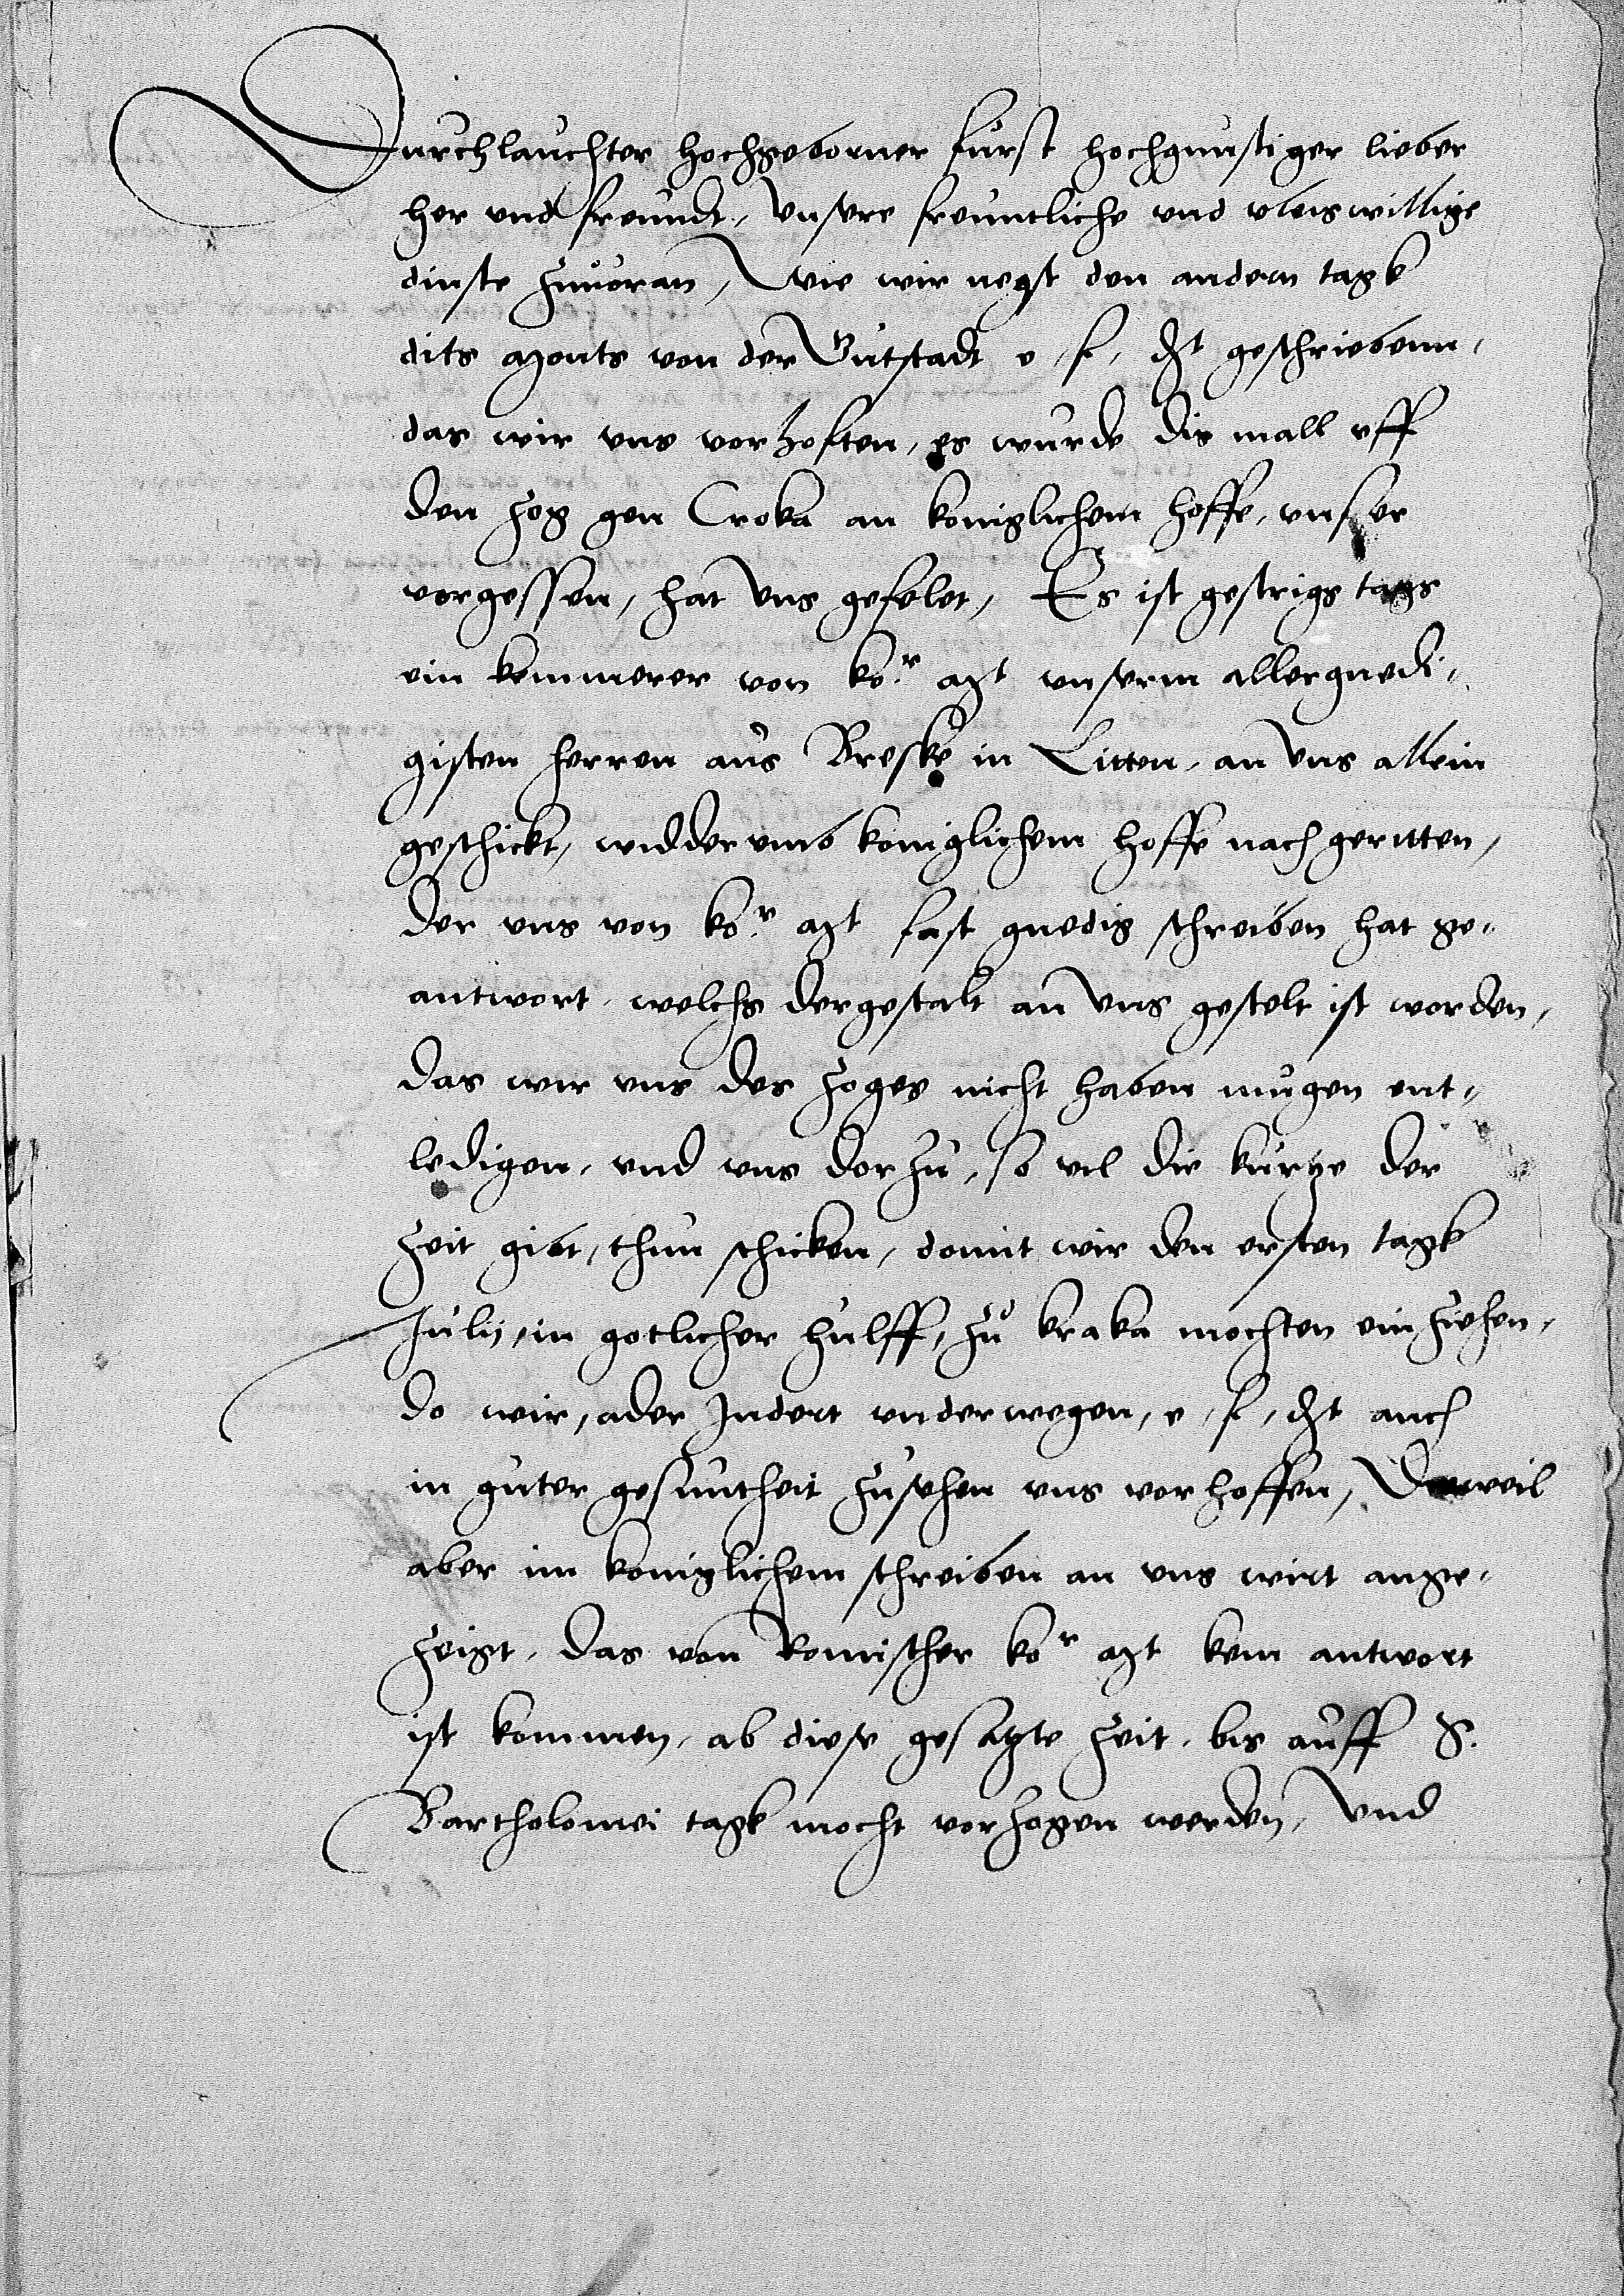 Durchlauchter hochgeborner furst hochgunstiger lieber
her vnd freundt, Vnsere freuntliche vnd vleiswillige
dinste zuuoran, Wie wir negst den andern tagk
dits monts von der Gutstadt e, f, dt geschriebenn,
das wir vns vorhoften, es wurde dis mall vff
den zog gen Croka an koniglichem hoffe, vnser
vorgessen, hat Vns gefelet, Es ist gestrigs tags
ein kemmerer von ko:r mt vnserm allergnedi-
gisten herren aus Breske in Litten, an Vns allein
geschickt, widderumb koniglichem hoffe nach geritten,
der vns von ko:r mt fast gnedig schreiben hat ge-
antwort, welchs dergestalt an Vns gestelt ist worden,
das wir vns des zoges nicht haben mugen ent-
ledigen, vnd vns dorzu, so vil die kurtze der
zeit gibt, thun schicken, domit wir den ersten tagk
Julij, in gotlicher hulff, zu kraka mochten ein ziehen,
do wir, ader Indert vnderwegen, e, f, dt auch
in guter gesuntheit zusehen vns vorhoffen, Derweil
aber im koniglichem schreiben an vns wirt ange-
zeigt, das von Romischer ko:r mt kein antwort
ist kommen, ab diese gesatzte zeit, bis auff S.
Bartholomei tagk mocht vorzogen werden, Vnd